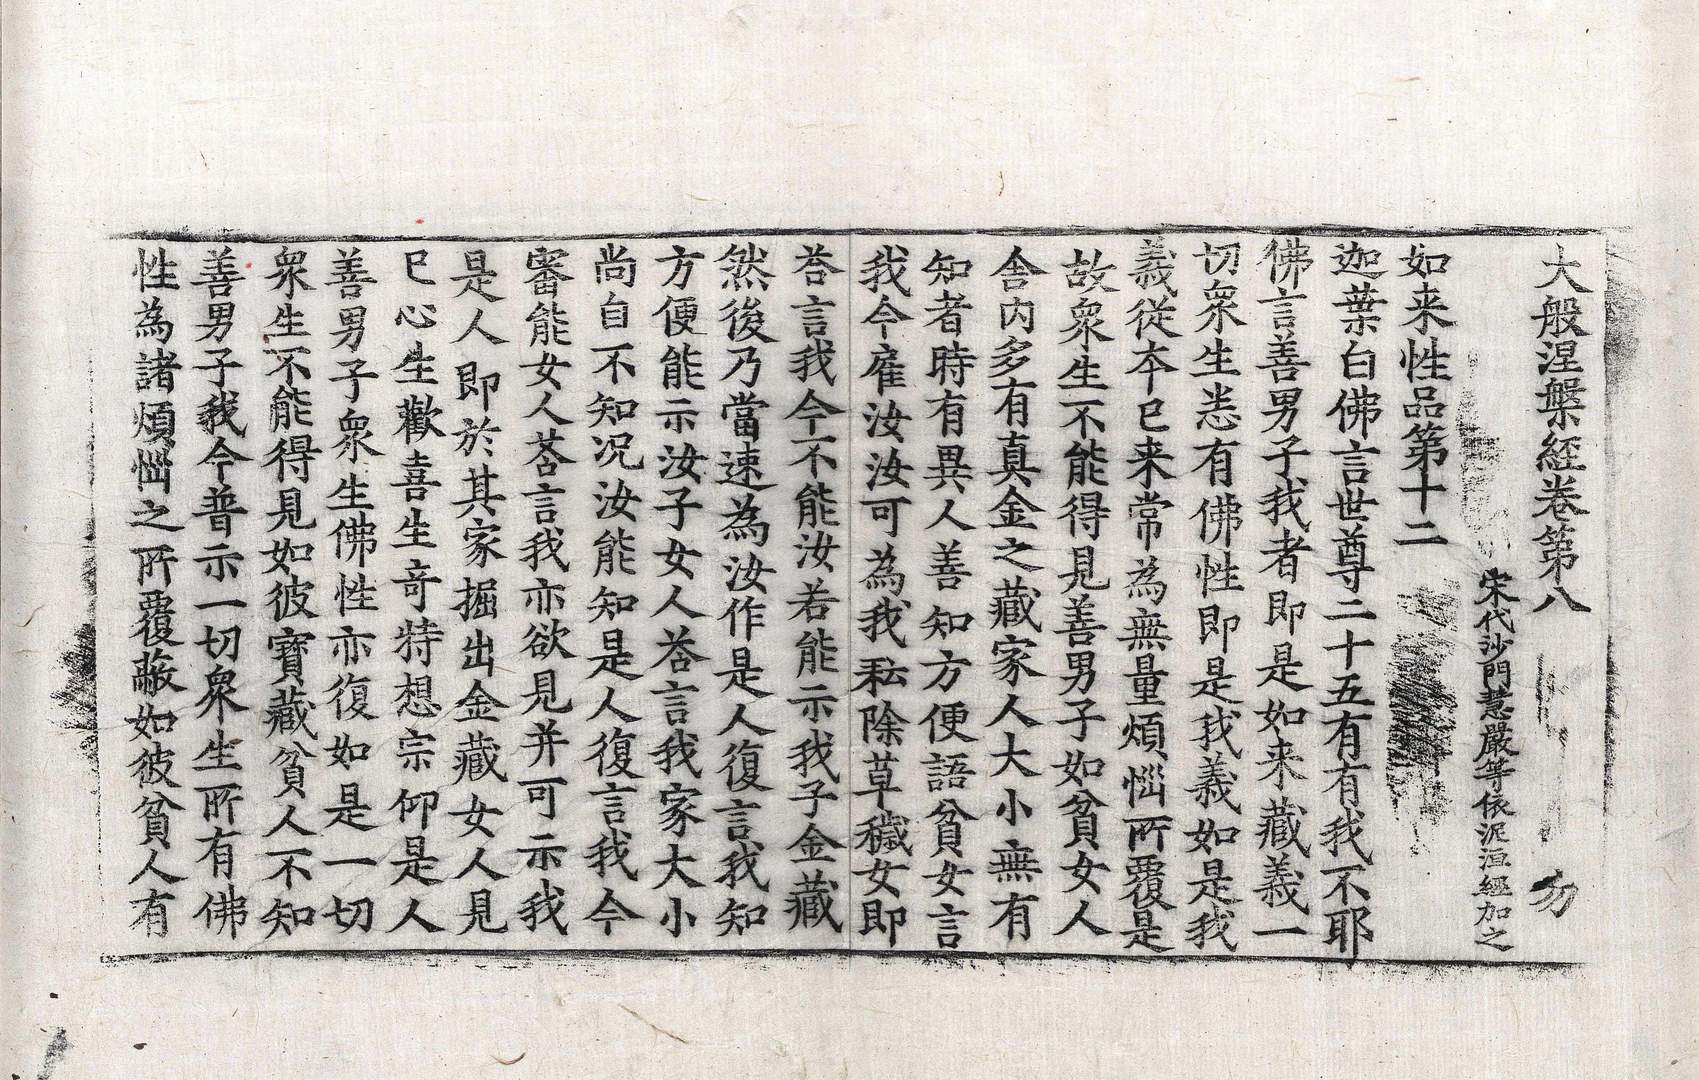 大般涅槃經卷第八　勿
宋代沙門慧嚴等依泥洹經加之
如来性品第十二
迦葉白佛言世尊二十五有有我不耶
佛言善男子我者即是如来藏義一
切衆生悉有佛性即是我義如是我
義從本已来常為無量煩惱所覆是
故衆生不能得見善男子如貧女人
舍内多有真金之藏家人大小無有
知者時有異人善知方便語貧女言
我今雇汝汝可為我耘除草穢女即
荅言我今不能汝若能示我子金藏
然後乃當速為汝作是人復言我知
方便能示汝子女人荅言我家大小
尚自不知况汝能知是人復言我今
審能女人荅言我亦欲見并可示我
是人即於其家掘出金藏女人見
已心生歡喜生奇特想宗仰是人
善男子衆生佛性亦復如是一切
衆生不能得見如彼寶藏貧人不知
善男子我今普示一切衆生所有佛
性為諸煩惱之所覆蔽如彼貧人有